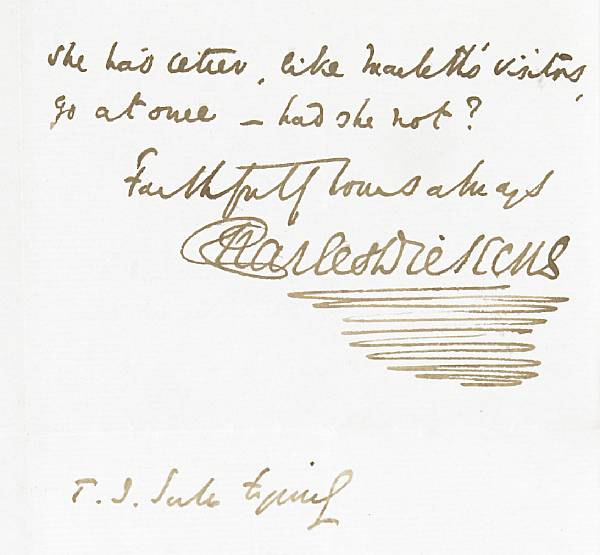 She had better, like Macbeth's visitors,
go at once – had she not?
Faithfully Yours always
Charles Dickens
T. J. Serle Esquire